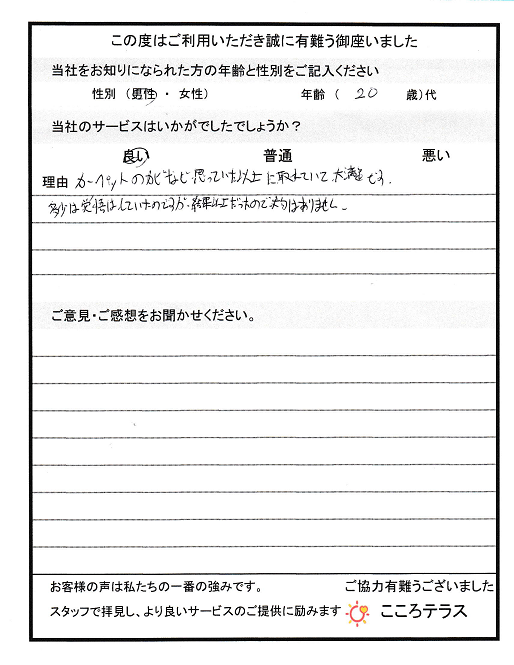 この度はご利用いただき誠に有難う御座いました
当社をお知りになられた方の年齢と性別をご記入ください
性別 (男性 ・ 女性) 年齢 ( 20 歳)代
当社のサービスはいかがでしたでしょうか？
良い 普通 悪い
理由 カーペットのカビなど思っていた以上に取れていて大満足です.
多少は覚悟はしていたのですが、結果以上だったので
ご意見・ご感想をお聞かせください。
お客様の声は私たちの一番の強みです。 ご協力有難うございました
スタッフで拝見し、より良いサービスのご提供に励みます こころテラス